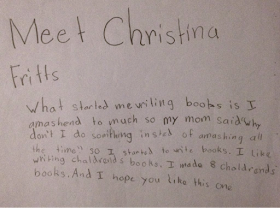 Meet Christina
Fritts
What started me writing books is I
amashend to much so my mom said "Why
don't I do somthing insted of amashing all
the time" so I started to write books. I like
writing chaldrands books. I made 8 chaldrands
books. And I hope you like this one